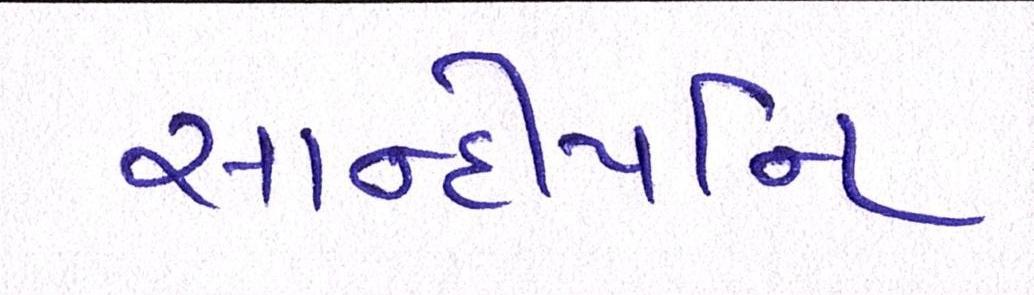 સાન્દીપનિ